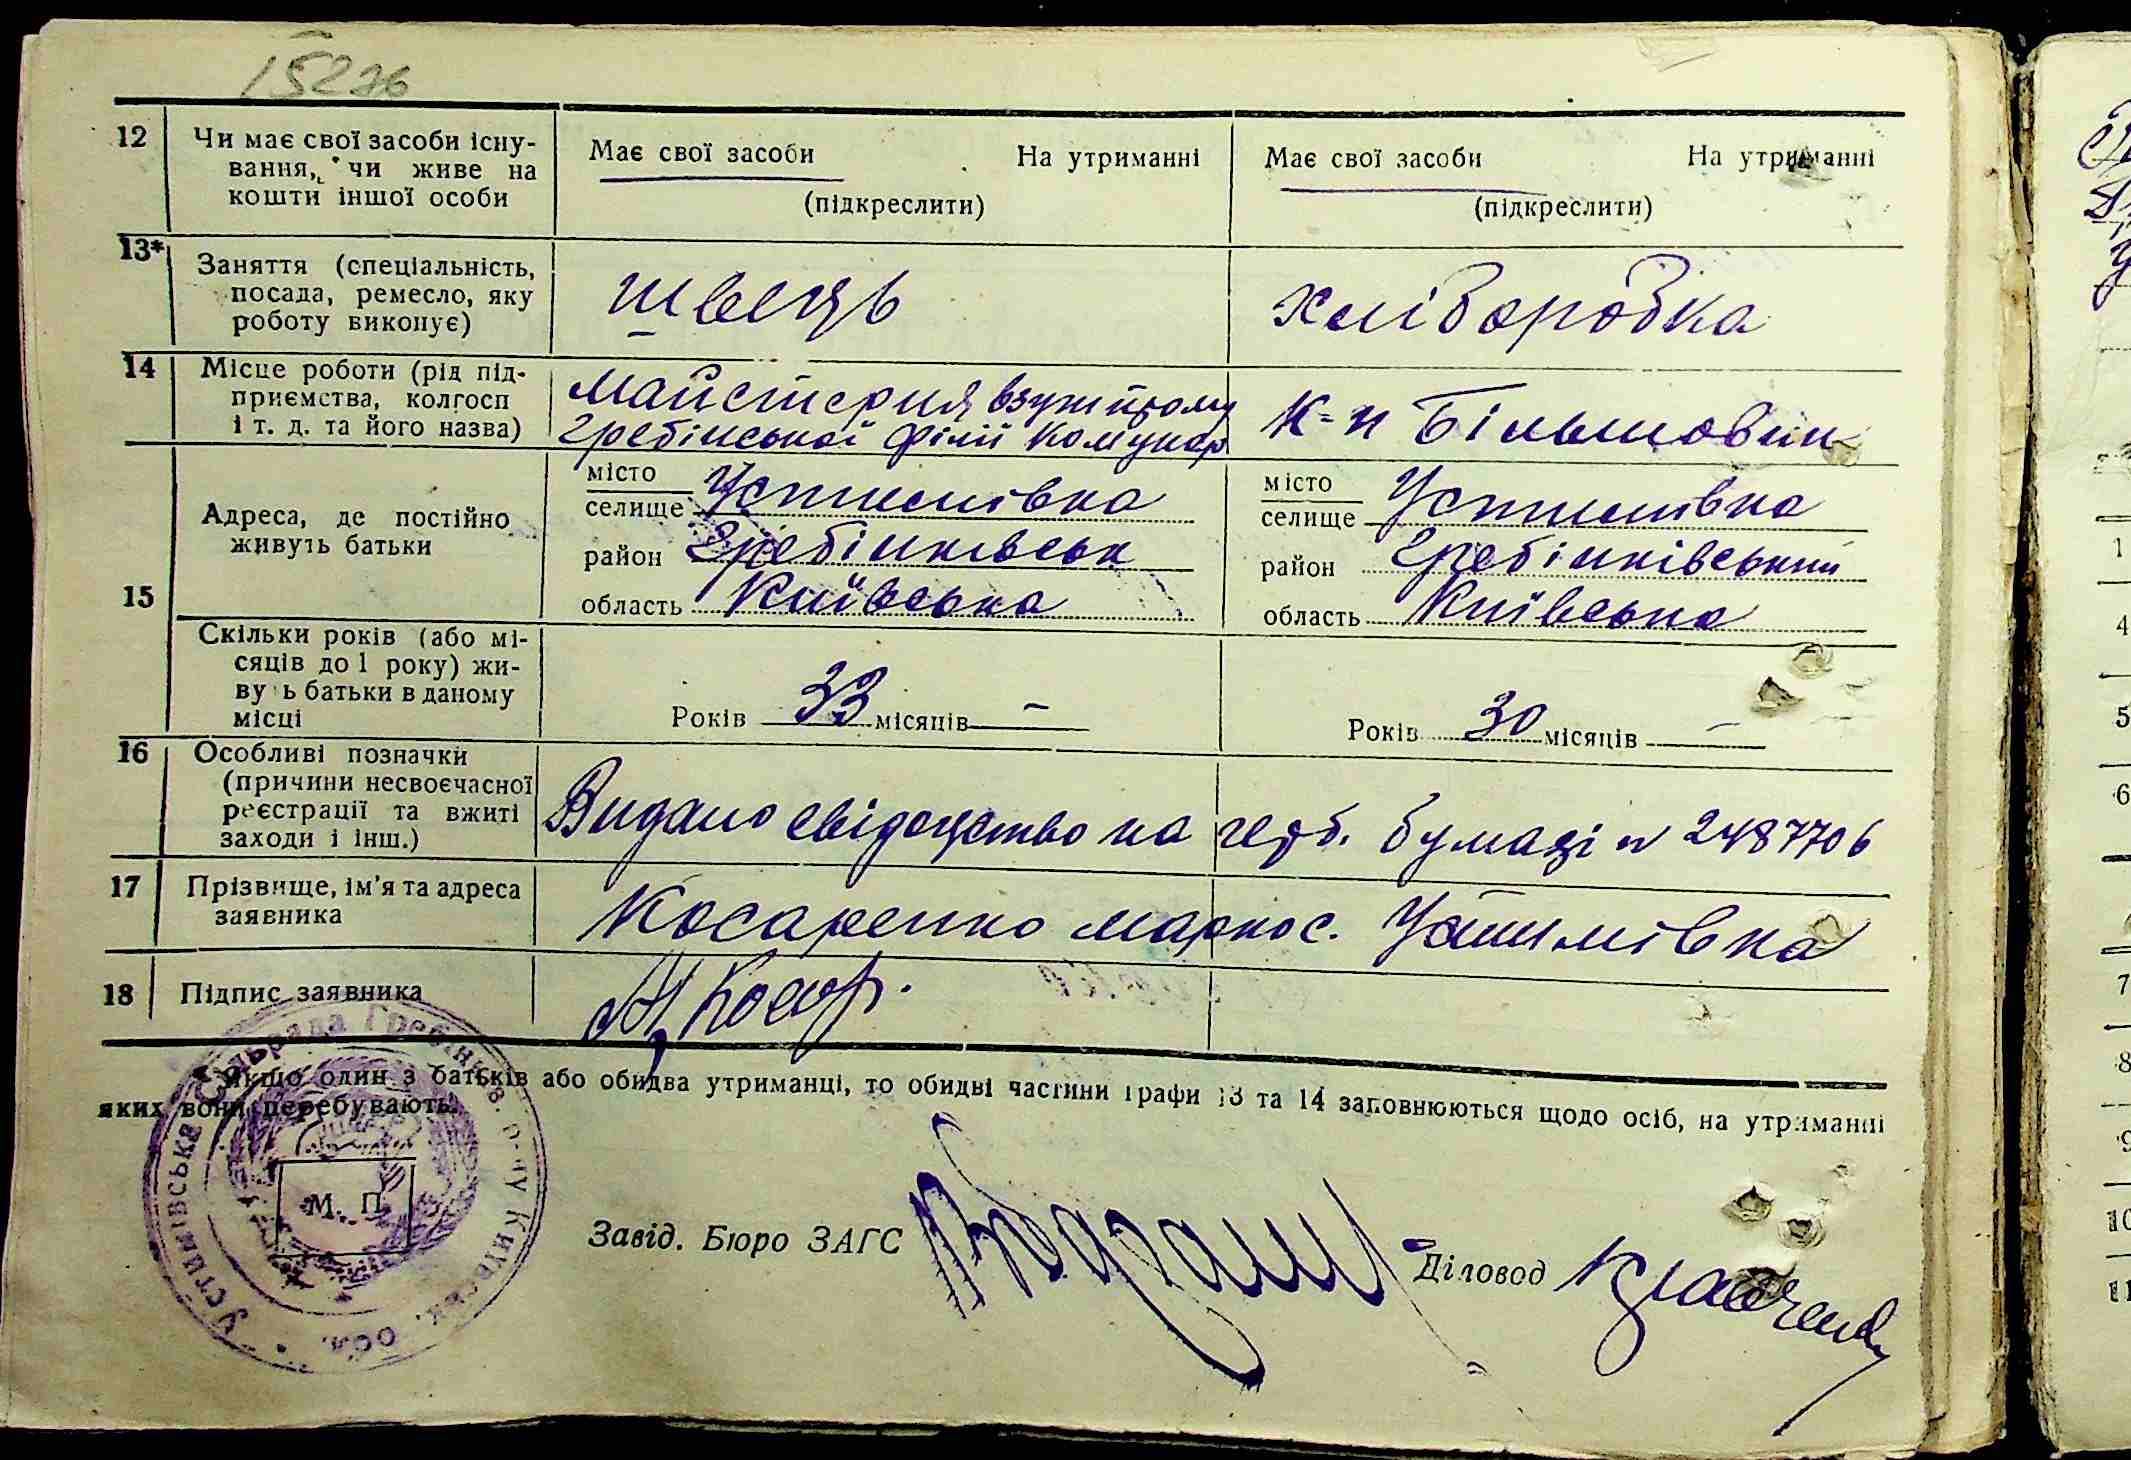 15226
12 Чи має свої засоби існу-
вання, чи живе на
кошти іншої особи
Має свої засоби На утриманні
(підкреслити)
Має свої засоби На утриманні
(підкреслити)
13* Заняття (спеціальність,
посада, ремесло, яку
роботу виконує)
швець
хліборобка
14 Місце роботи (рід під-
приємства, колгосп
і т. д. та його назва)
майстерня взутпрому
Гребінської філії Комунар
к-п Більшовик
15
Адреса, де постійно
живуть батьки
місто
селище Устимівка
район Гребінківськ
область Київська
місто
селище Устимівка
район Гребінківський
область Київська
Скільки років (або мі-
сяців до 1 року) жи-
ву ь батьки в даному
місці
Років 33 місяців –
Років 30 місяців –
16 Особливі позначки
(причини несвоєчасної
реєстрації та вжиті
заходи і інш.)
Видано свідоцтво на герб. бумазі № 2487706
17 Прізвище, ім'я та адреса
заявника
Косаренко с. Устимівка
18 Підпис заявника
М Косар.
Якщо один з батьків або обидва утриманці, то обидві частини графи 13 та 14 заповнюються щодо осіб, на утриманні
яких вони перебувають.
Устимівська Сільрада Гребінків. р-ну Київськ. обл.
М. П.
Завід. Бюро ЗАГС
Діловод